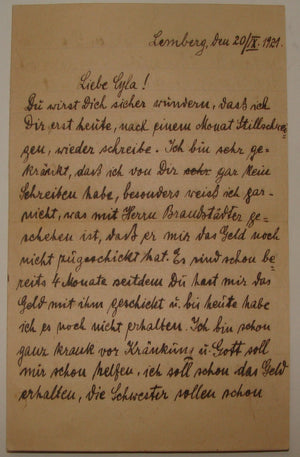 Lemberg, den 20/IX. 1921.
Liebe Cyla!
Du wirst Dich sicher wundern, dass ich
Dir erst heute, nach einem Monat Stillschwei-
gen, wieder schreibe. Ich bin sehr ge-
kränkt, dass ich von Dir sehr gar kein
Schreiben habe, besonders weiß ich gar-
nicht, was mit Herrn Brandstätter ge-
schehen ist, daß er mir das Geld noch
nicht zugeschickt hat. Es sind schon be-
reits 4 Monate seitdem Du hast mir das
Geld mit ihm geschickt u. bis heute habe
ich es noch nicht erhalten. Ich bin schon
ganz krank vor Kränkung u. Gott soll
mir schon helfen, ich soll schon das Geld
erhalten, die Schwester sollen schon